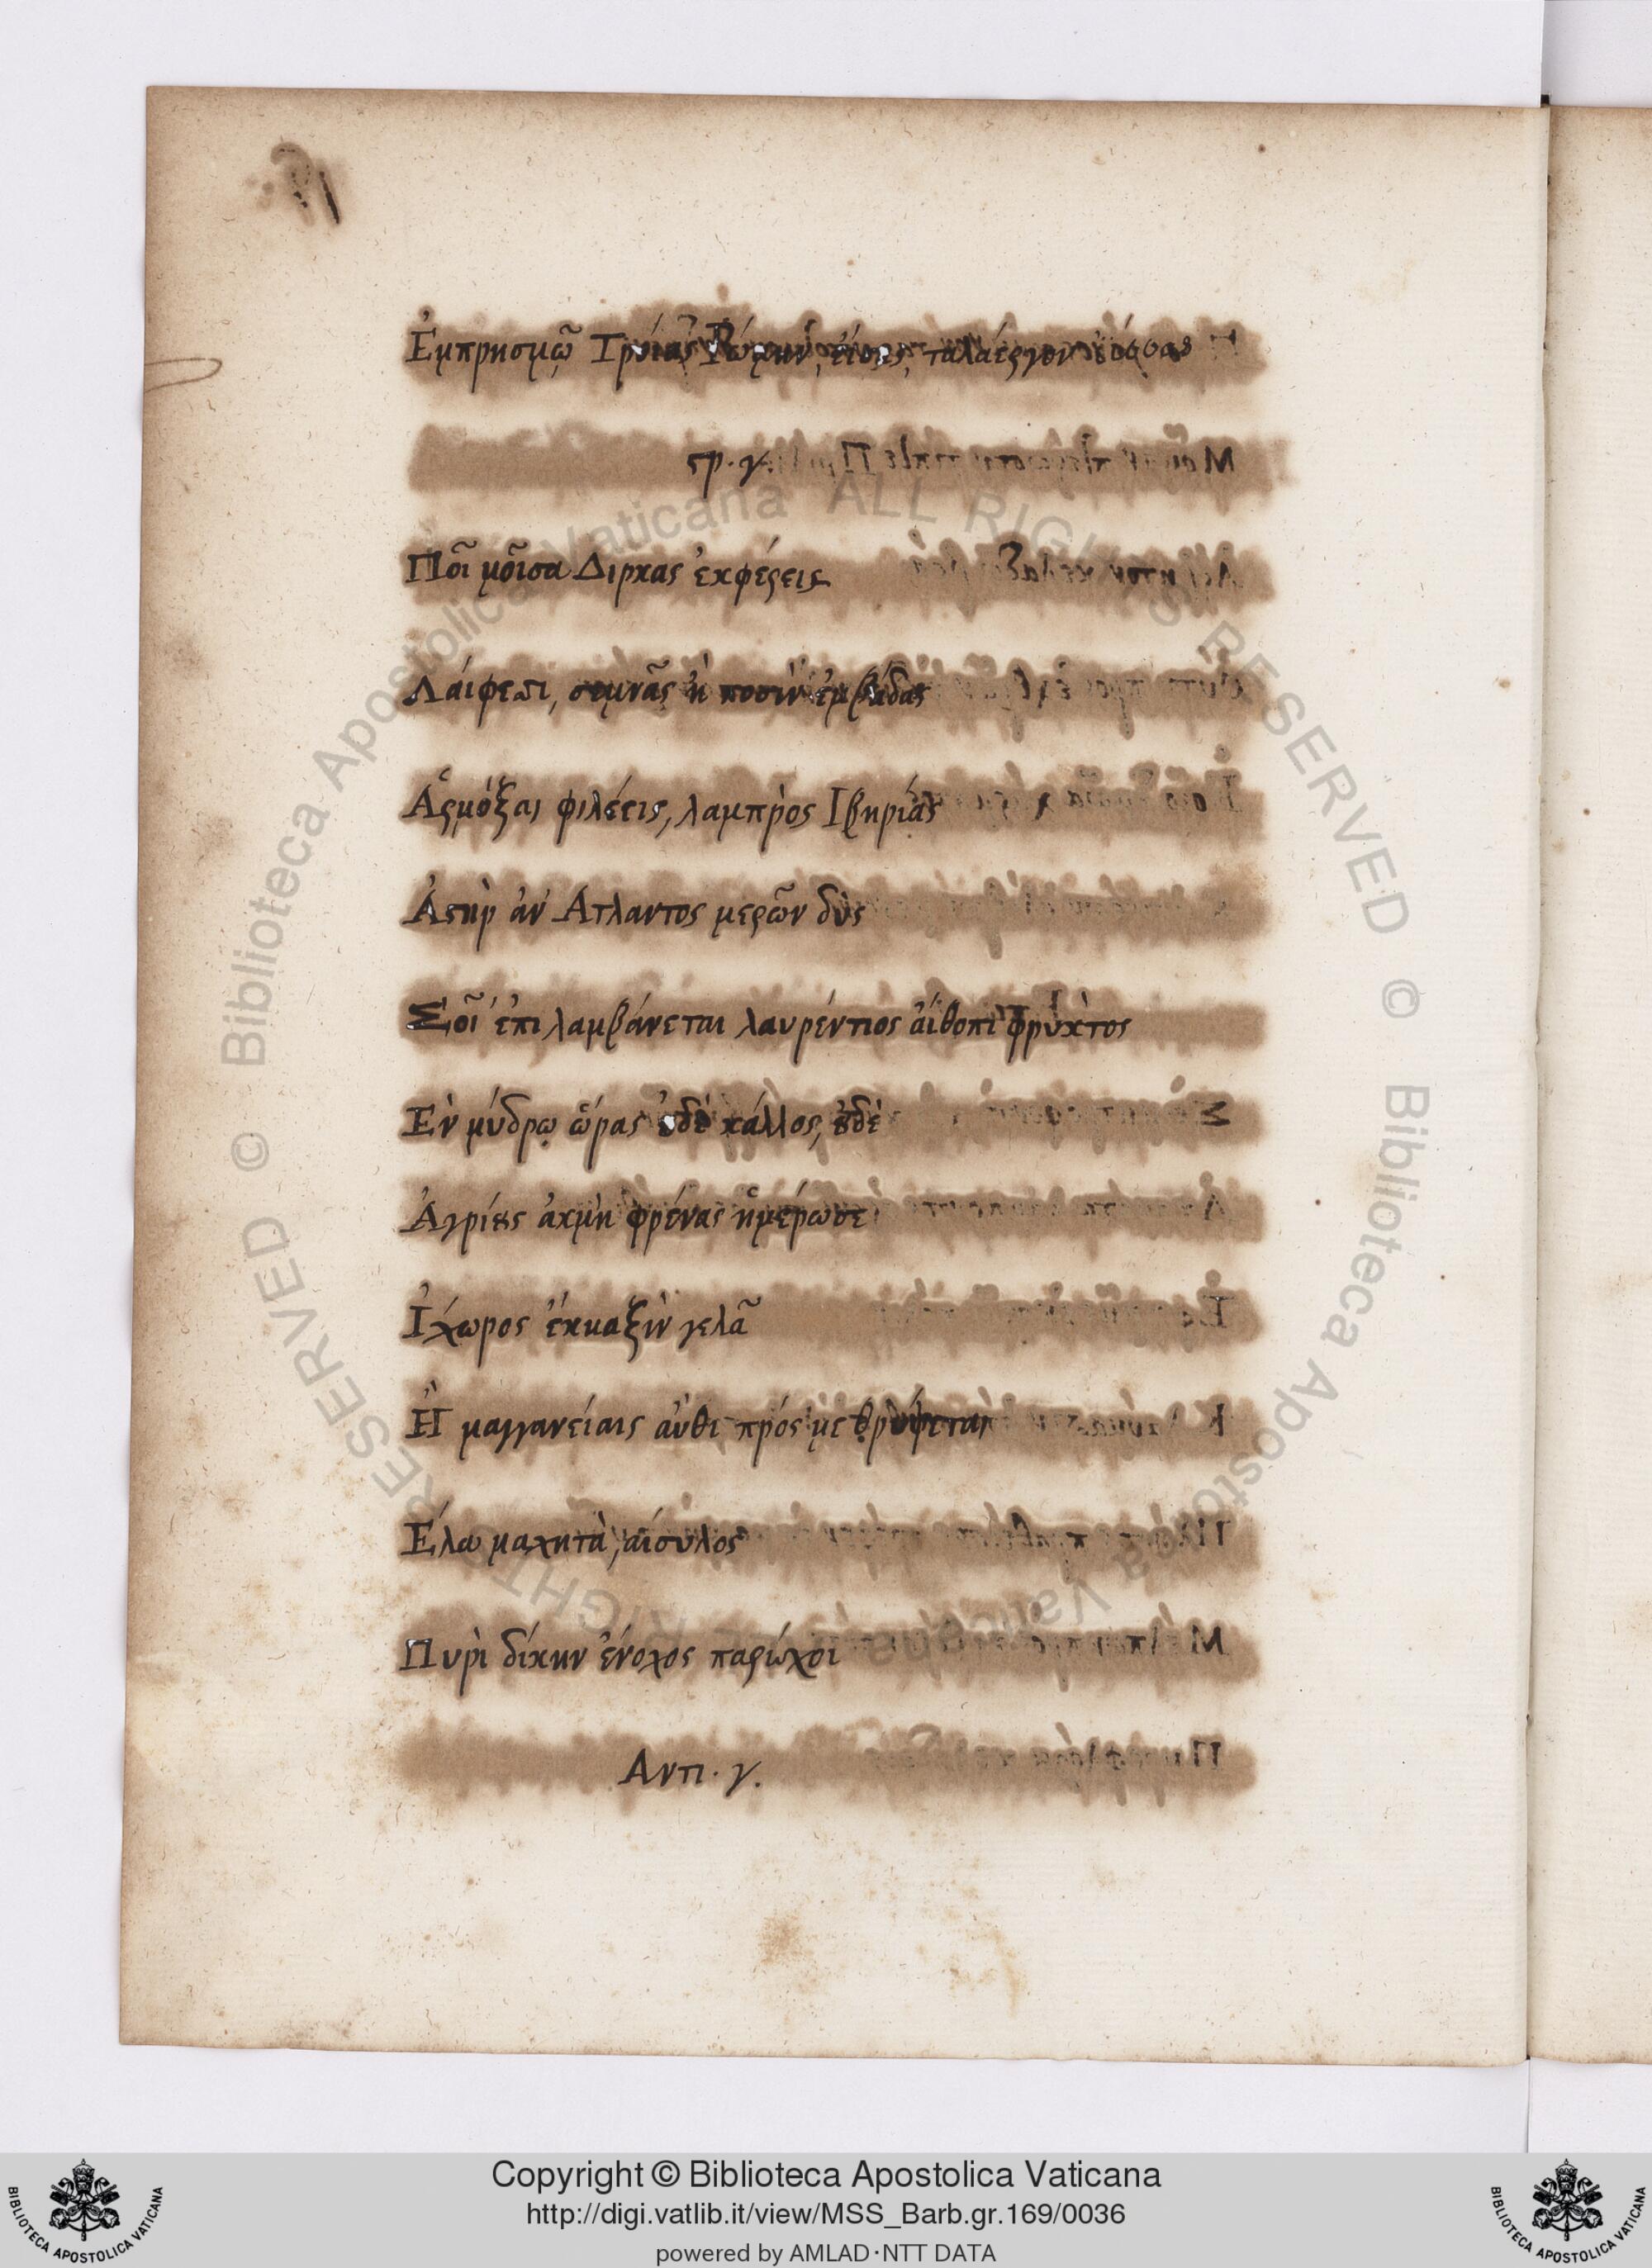 Ἐμπρησμῷ Τροίας Ῥώμην, ταλαέργον
στρ. γ.
Ποῖ μοῖσα Διρκας ἐκφέρεις
Λαίφεσι, σεμνᾶς ἢ ποσὶν ἐμβάδας
Ἁρμόξαι φιλέεις, λαμπρὸς Ιβηρίας
Ἀστὴρ ἀν' Ατλαντος μερῶν δὺς
Σοῖ ἐπιλαμβάνεται λαυρέντιος αἴθοπι φρυκτὸς
Εν μύδρῳ ὥρας ȣ̓δὲ κάλλος, ȣ̓δὲ
Ἀγρίȣς ἀκμὴ φρένας ἡμέρωσε
Ἰχῶρος ἐκμαξὶν γελᾶ
Ἢ μαγγανείαις αὖθι πρός με θρύψεται
Ελω μαχητὰ, αἴσυλος
Πυρὶ δίκην ἔνοχος παρώχοι
Αντι. γ.
Copyright © Biblioteca Apostolica Vaticana
http://digi.vatlib.it/view/MSS_Barb.gr.169/0036
powered by AMLAD·NTT DATA